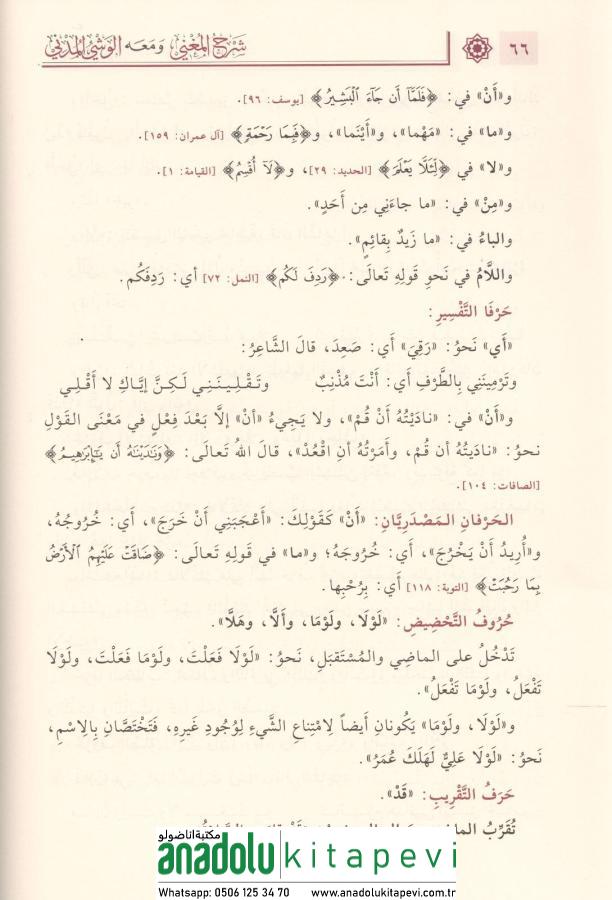 ٦٦ شَرْحُ المُغْنِي وَمَعَه الوَشْيُ المَدَنِي
و«أَنْ» في: ﴿فَلَمَّا أَن جَاءَ الْبَشِيرُ﴾ [يوسف: ٩٦].
و«ما» في: «مَهْما»، و«أَيْنَما»، و﴿فَبِمَا رَحْمَةٍ﴾ [آل عمران: ١٥٩].
و«لا» في ﴿لِئَلَّا يَعْلَمَ﴾ [الحديد: ٢٩]، و﴿لَا أُقْسِمُ﴾ [القيامة: ١].
و«مِنْ» في: «ما جاءَنِي مِن أَحَدٍ».
والباءُ في: «ما زَيدٌ بِقائِمٍ».
واللَّامُ في نَحوِ قَولِهِ تَعالَى: ﴿رَدِفَ لَكُم﴾ [النمل: ٧٢] أي: رَدِفَكُم.
حَرْفَا التَّفْسِيرِ:
«أَي» نَحوُ: «رَقِيَ» أَي: صَعِدَ، قالَ الشَّاعِرُ:
وتَرْمِينَنِي بِالطَّرْفِ أَي: أَنْتَ مُذْنِبٌ وتَقْلِينَنِي لَكِنَّ إِيَّاكِ لا أَقْلِي
و«أَنْ» في: «نادَيْتُهُ أَنْ قُمْ»، ولا يَجِيءُ «أَنْ» إلَّا بَعْدَ فِعْلٍ في مَعْنَى القَوْلِ
نحوُ: «نادَيتُه أن قُمْ، وأَمَرْتُهُ أنِ اقْعُدْ»، قالَ اللهُ تَعالَى: ﴿وَنَادَيْنَاهُ أَن يَا إِبْرَاهِيمُ﴾
[الصافات: ١٠٤].
الحَرْفانِ المَصْدَرِيَّانِ: «أَنْ» كَقَوْلِكَ: «أَعْجَبَنِي أَنْ خَرَجَ»، أي: خُرُوجُهُ،
و«أُرِيدُ أَنْ يَخْرُجَ»، أي: خُرُوجَهُ؛ و«ما» في قَولِهِ تَعالَى: ﴿ضَاقَتْ عَلَيْهِمُ الْأَرْضُ
بِمَا رَحُبَتْ﴾ [التوبة: ١١٨] أَي: بِرُحْبِها.
حُرُوفُ التَّحْضِيضِ: «لَوْلَا، ولَوْمَا، وأَلَّا، وهَلَّا».
تَدْخُلُ على الماضِي والمُسْتَقبَلِ، نَحوُ: «لَوْلَا فَعَلْتَ، ولَوْمَا فَعَلْتَ، ولَوْلَا
تَفْعَلُ، ولَوْمَا تَفْعَلُ».
و«لَوْلَا، ولَوْمَا» يَكُونانِ أَيضاً لِامْتِناعِ الشَّيءِ لِوُجُودِ غَيرِهِ، فَتَخْتَصَّانِ بِالِاسْمِ،
نَحوُ: «لَوْلَا عَلِيٌّ لَهَلَكَ عُمَرُ».
حَرفُ التَّقْرِيبِ: «قَدْ».
تُقَرِّبُ
مكتبة اناضولو
anadolu kitapevi
Whatsapp: 0506 125 34 70 www.anadolukitapevi.com.tr